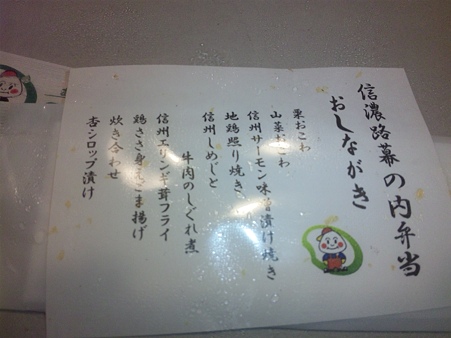 信濃路幕の内弁当
おしながき
栗おこわ
山菜おこわ
信州サーモン味噌漬け焼き
地鶏照り焼き
信州しめじと
牛肉のしぐれ煮
信州エリンギ茸フライ
鶏ささ身えごま揚げ
炊き合わせ
杏シロップ漬け